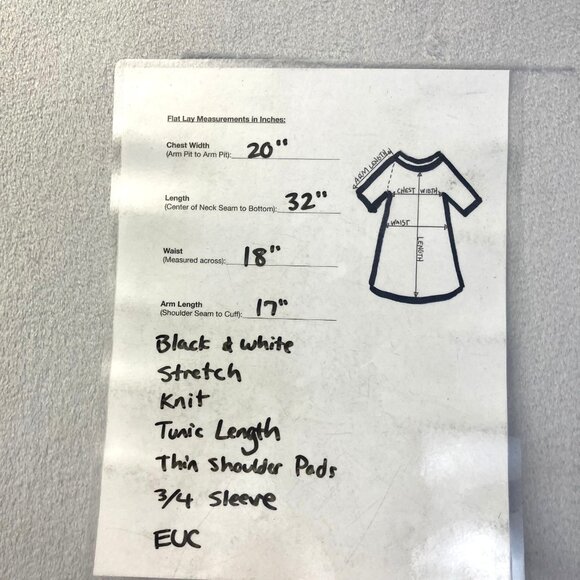 Flat Lay Measurements in Inches:
Chest Width
(Arm Pit to Arm Pit): 20"
Length
(Center of Neck Seam to Bottom): 32"
Waist
(Measured across): 18"
Arm Length
(Shoulder Seam to Cuff): 17"
Black & white
Stretch
Knit
Tunic Length
Thin Shoulder Pads
3/4 Sleeve
EUC
ARM LENGTH
CHEST WIDTH
WAIST
LENGTH